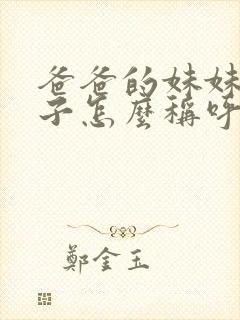 爸爸的妹妹
子怎麼稱呼
鄭金玉